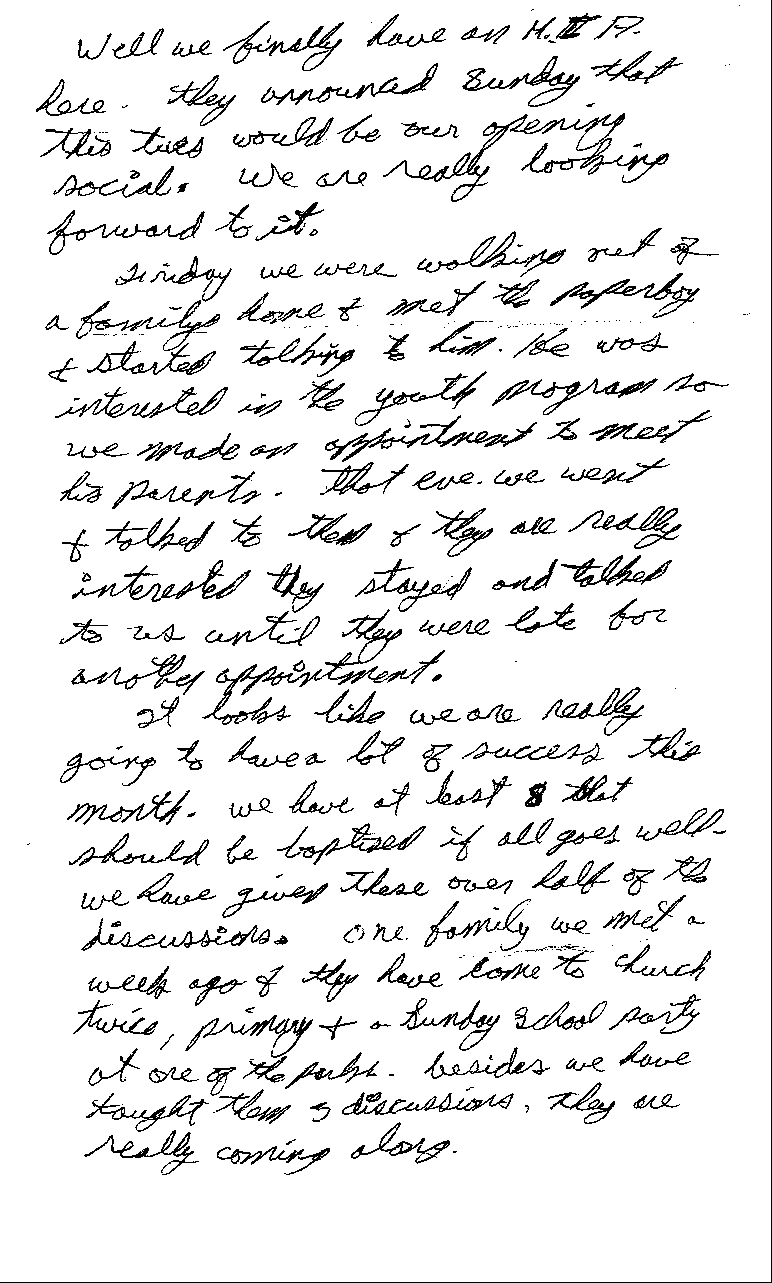 Well we finally have an M.I.A.
here. they announced Sunday that
this tues would be our opening
social. We are really looking
forward to it.
we were walking out of
a familys home & met the paperboy
& started talking to him. He was
interested in the youth program so
we made an appointment to meet
his parents. That eve. we went
& talked to them & they are really
interested they stayed and talked
to us until they were late for
another appointment.
It looks like we are really
going to have a lot of success this
month. we have at least 8 that
should be baptised if all goes well-
we have given these over half of the
discussions. One family we met a
week ago & they have come to church
twice, primary & a Sunday School party
at one of the parks. besides we have
taught them 3 discussions, they are
really coming along.